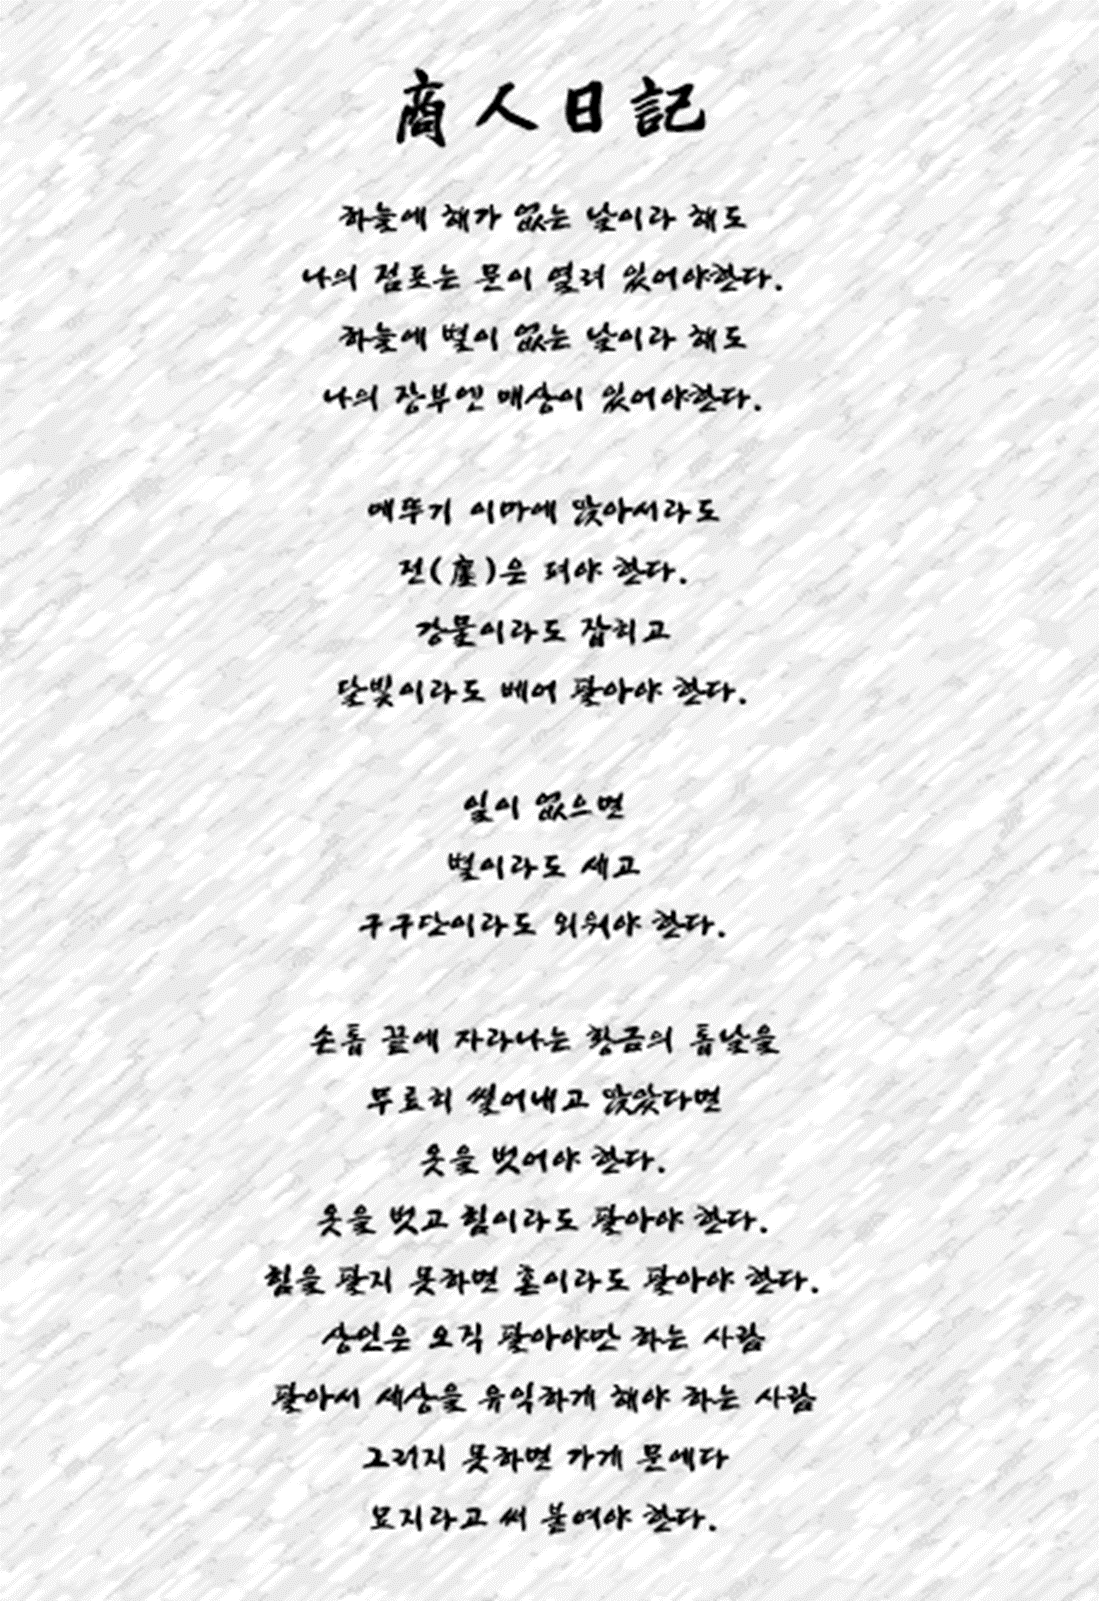 商人日記
하늘에 해가 없는 날이라 해도
나의 점포는 문이 열려 있어야한다.
하늘에 별이 없는 날이라 해도
나의 장부엔 매상이 있어야한다.
메뚜기 이마에 앉아서라도
전(廛)은 펴야 한다.
강물이라도 잡히고
달빛이라도 베어 팔아야 한다.
일이 없으면
별이라도 세고
구구단이라도 외워야 한다.
손톱 끝에 자라나는 황금의 톱날을
무료히 썰어내고 앉았다면
옷을 벗어야 한다.
옷을 벗고 힘이라도 팔아야 한다.
힘을 팔지 못하면 혼이라도 팔아야 한다.
상인은 오직 팔아야만 하는 사람
팔아서 세상을 유익하게 해야 하는 사람
그러지 못하면 가게 문에다
묘지라고 써 붙여야 한다.